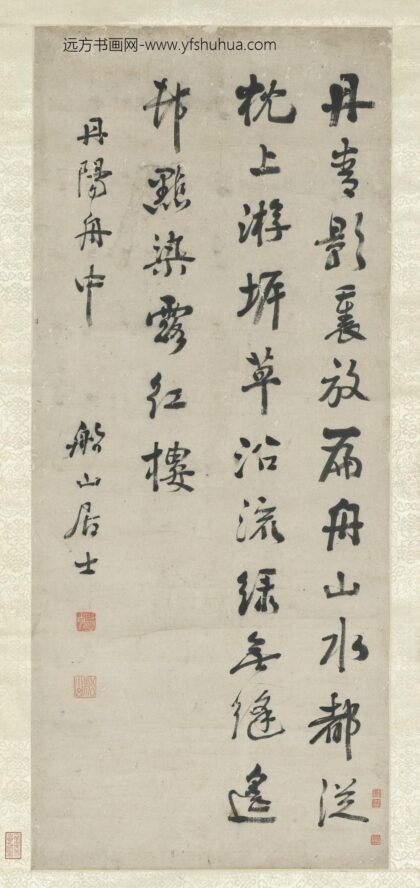 远方书画网-www.yfshuhua.com
丹青影裏放扁舟山水都從
枕上游草沿流綠無縫遙
邨點染露紅樓
丹陽舟中
船山居士